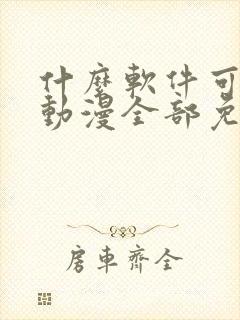 什麼軟件可
動漫全部免
房車齊全